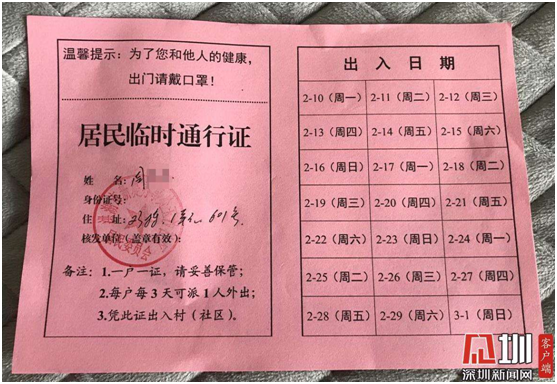 温馨提示：为了您和他人的健康，
出门请戴口罩！
居民临时通行证
姓 名：周
身份证号：
住 址： 1单元 601号
核发单位（盖章有效）：
备注：1.一户一证，请妥善保管；
2.每户每3天可派1人外出；
3.凭此证出入村（社区）。
出入日期
2-10（周一） 2-11（周二） 2-12（周三）
2-13（周四） 2-14（周五） 2-15（周六）
2-16（周日） 2-17（周一） 2-18（周二）
2-19（周三） 2-20（周四） 2-21（周五）
2-22（周六） 2-23（周日） 2-24（周一）
2-25（周二） 2-26（周三） 2-27（周四）
2-28（周五） 2-29（周六） 3-1（周日）
见圳
客户端
深圳新闻网